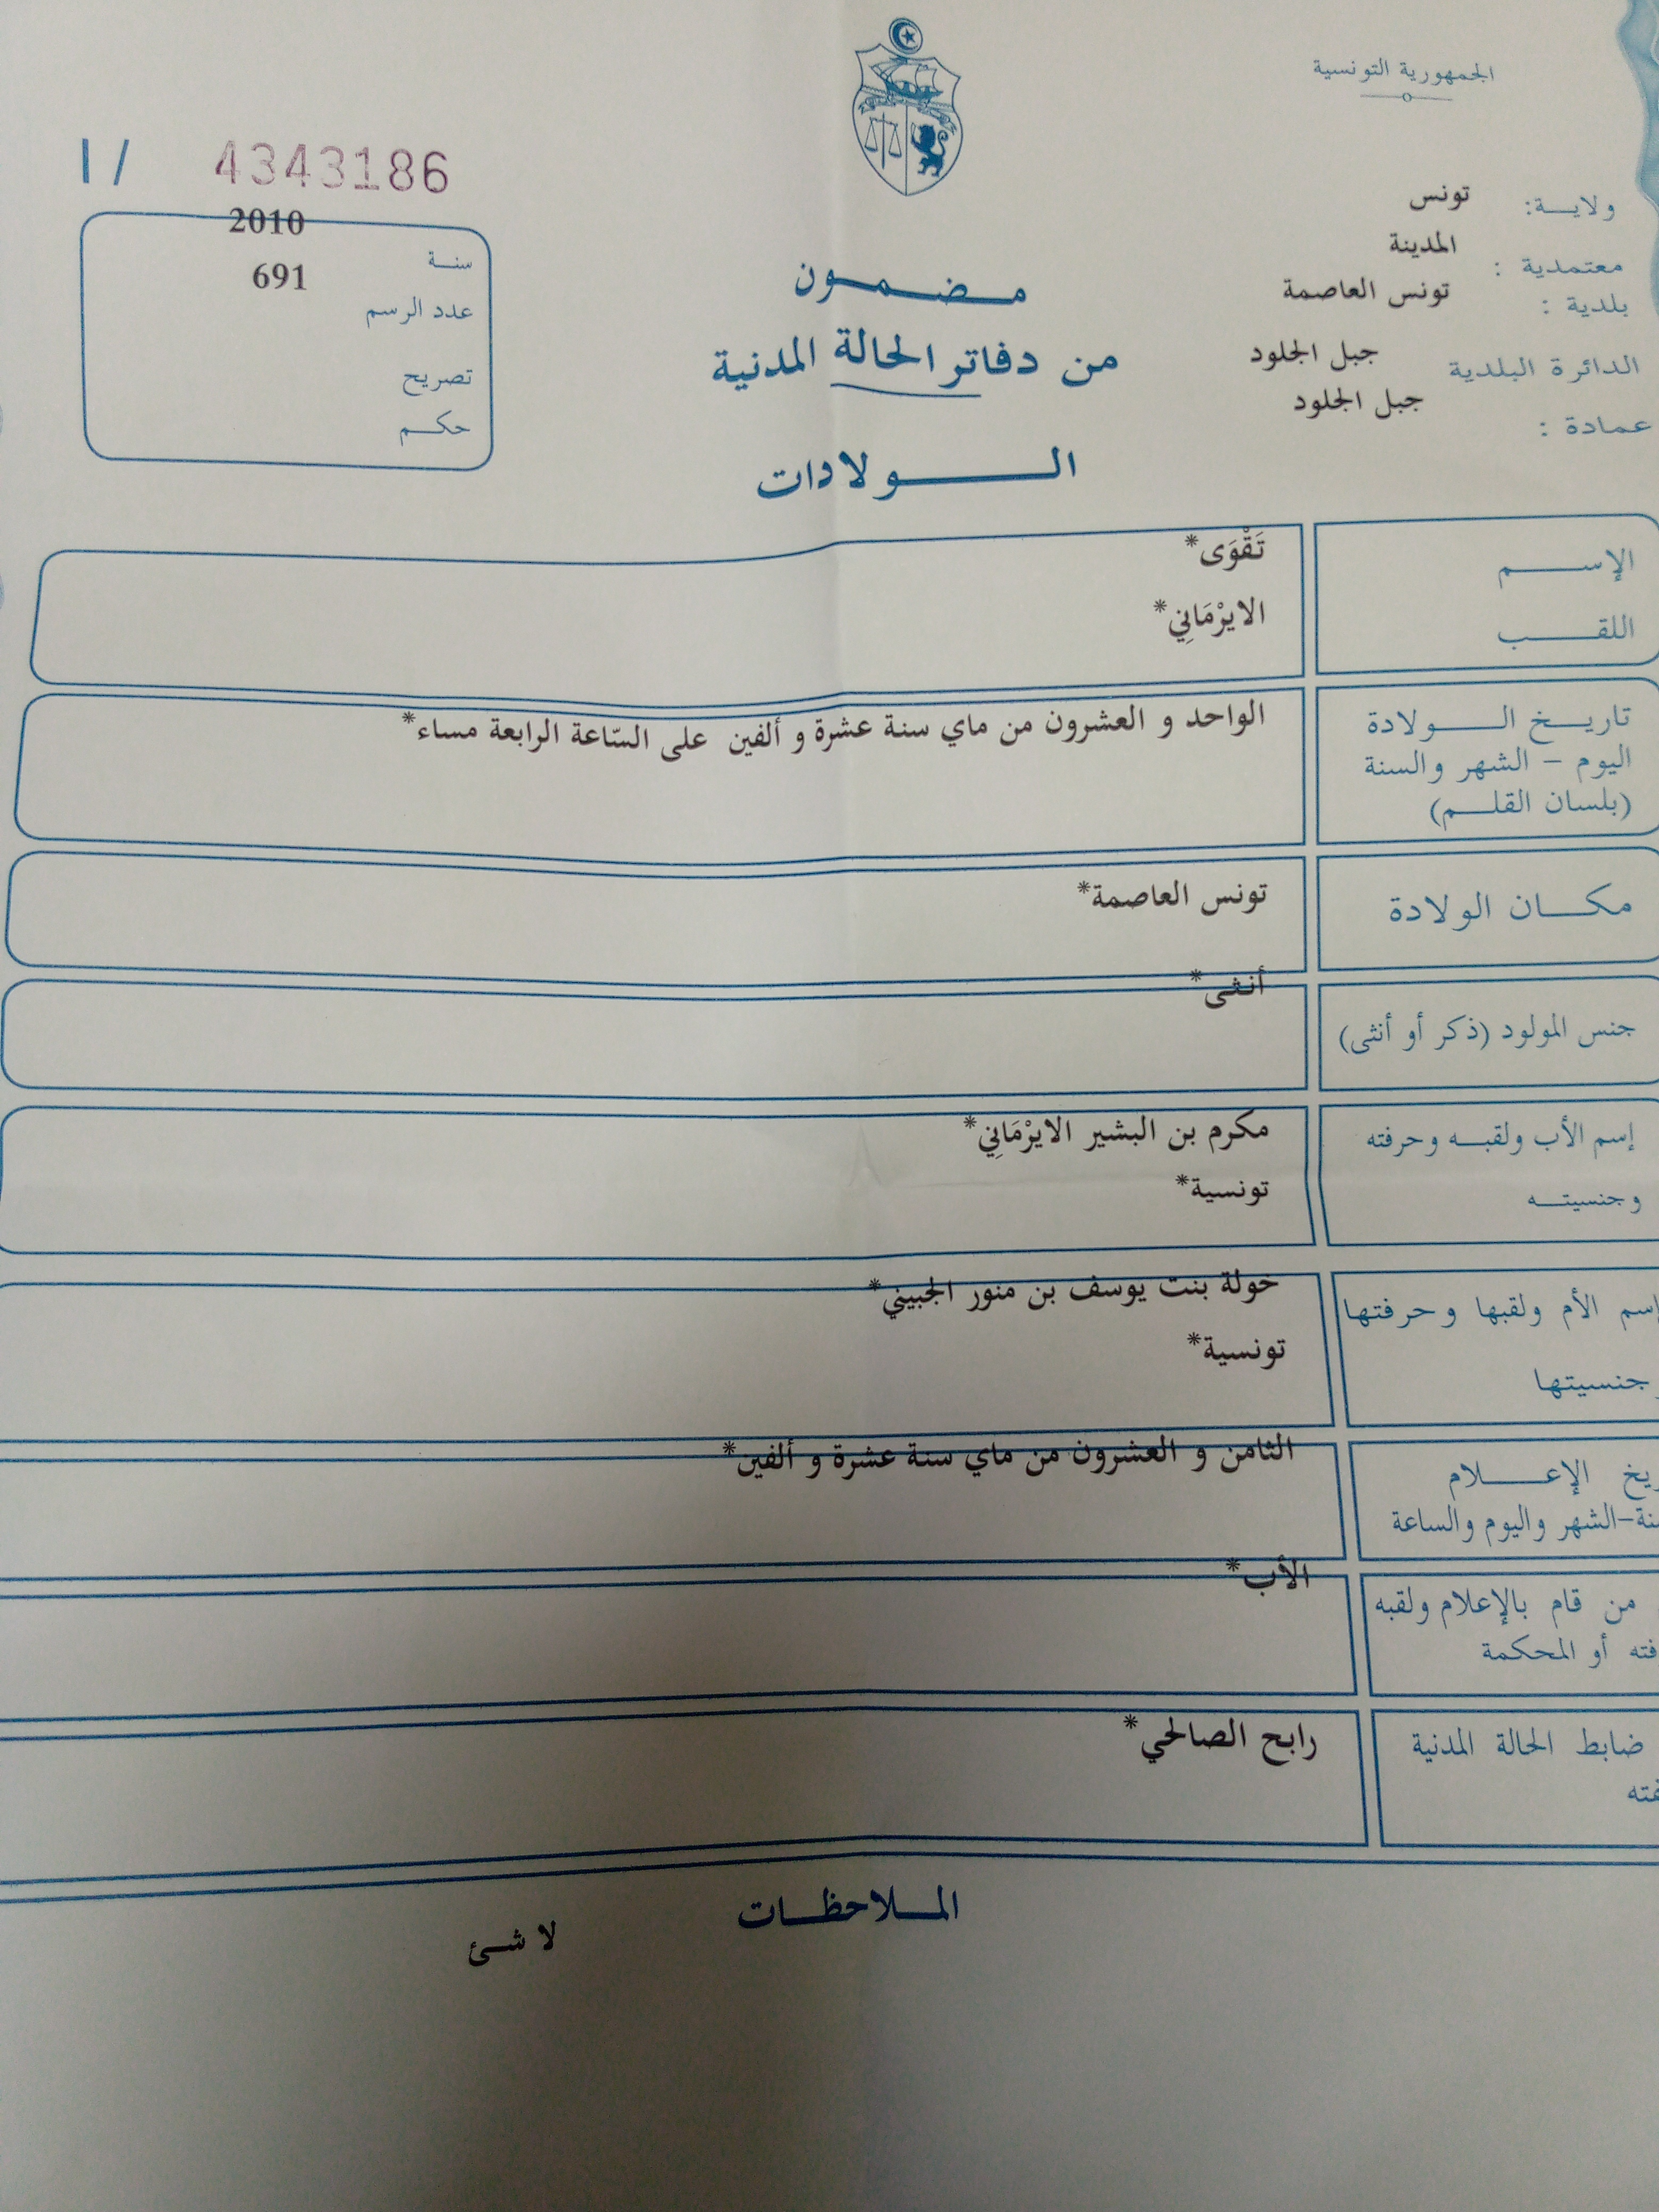 الجمهورية التونسية
ا/ 4343186
ولاية: تونس
معتمدية : المدينة
بلدية : تونس العاصمة
الدائرة البلدية جبل الجلود
عمادة : جبل الجلود
سنة 2010
عدد الرسم 691
تصريح
حكم
مضمون
من دفاتر الحالة المدنية
الولادات
الإسم تَقْوَى*
اللقب الايرْمَانِي*
تاريخ الولادة الواحد و العشرون من ماي سنة عشرة و ألفين على السّاعة الرابعة مساء*
اليوم - الشهر والسنة
(بلسان القلم)
مكان الولادة تونس العاصمة*
جنس المولود (ذكر أو أنثى) أنثى*
إسم الأب ولقبه وحرفته مكرم بن البشير الايرْمَانِي*
وجنسيته تونسية*
إسم الأم ولقبها وحرفتها خولة بنت يوسف بن منور الجبيني*
وجنسيتها تونسية*
الإعلام الثامن و العشرون من ماي سنة عشرة و ألفين*
الشهر واليوم والساعة
من قام بالإعلام ولقبه الأب*
أو المحكمة
ضابط الحالة المدنية رابح الصالحي*
الملاحظات
لا شئ